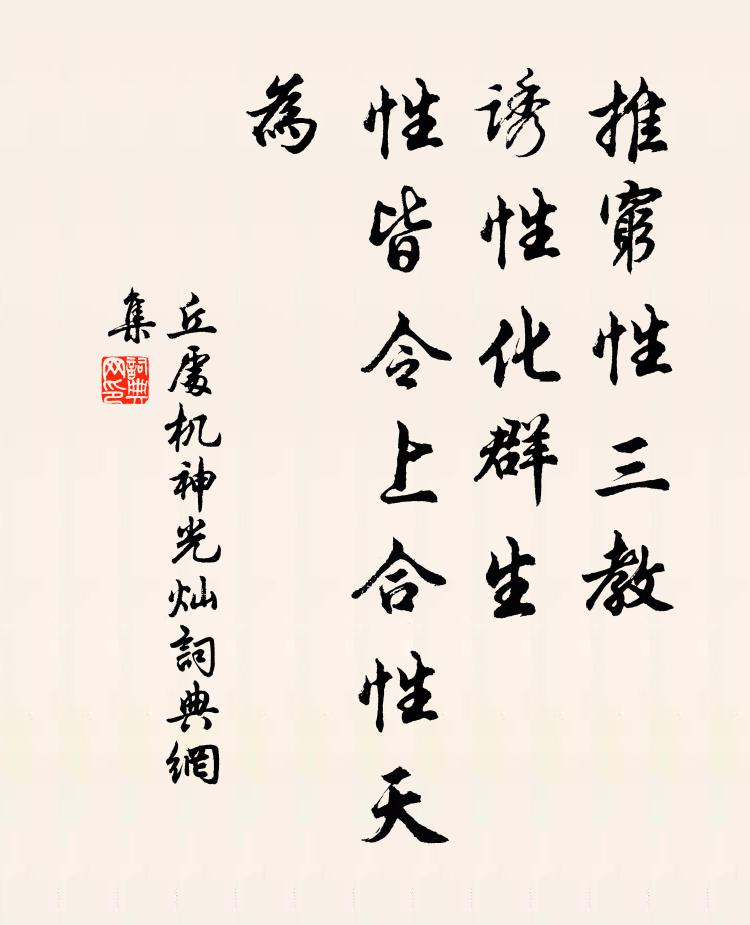 推窮性三教
诱性化群生
性皆令上合性天
為
丘處机神光灿詞典網
集
詞典
网印